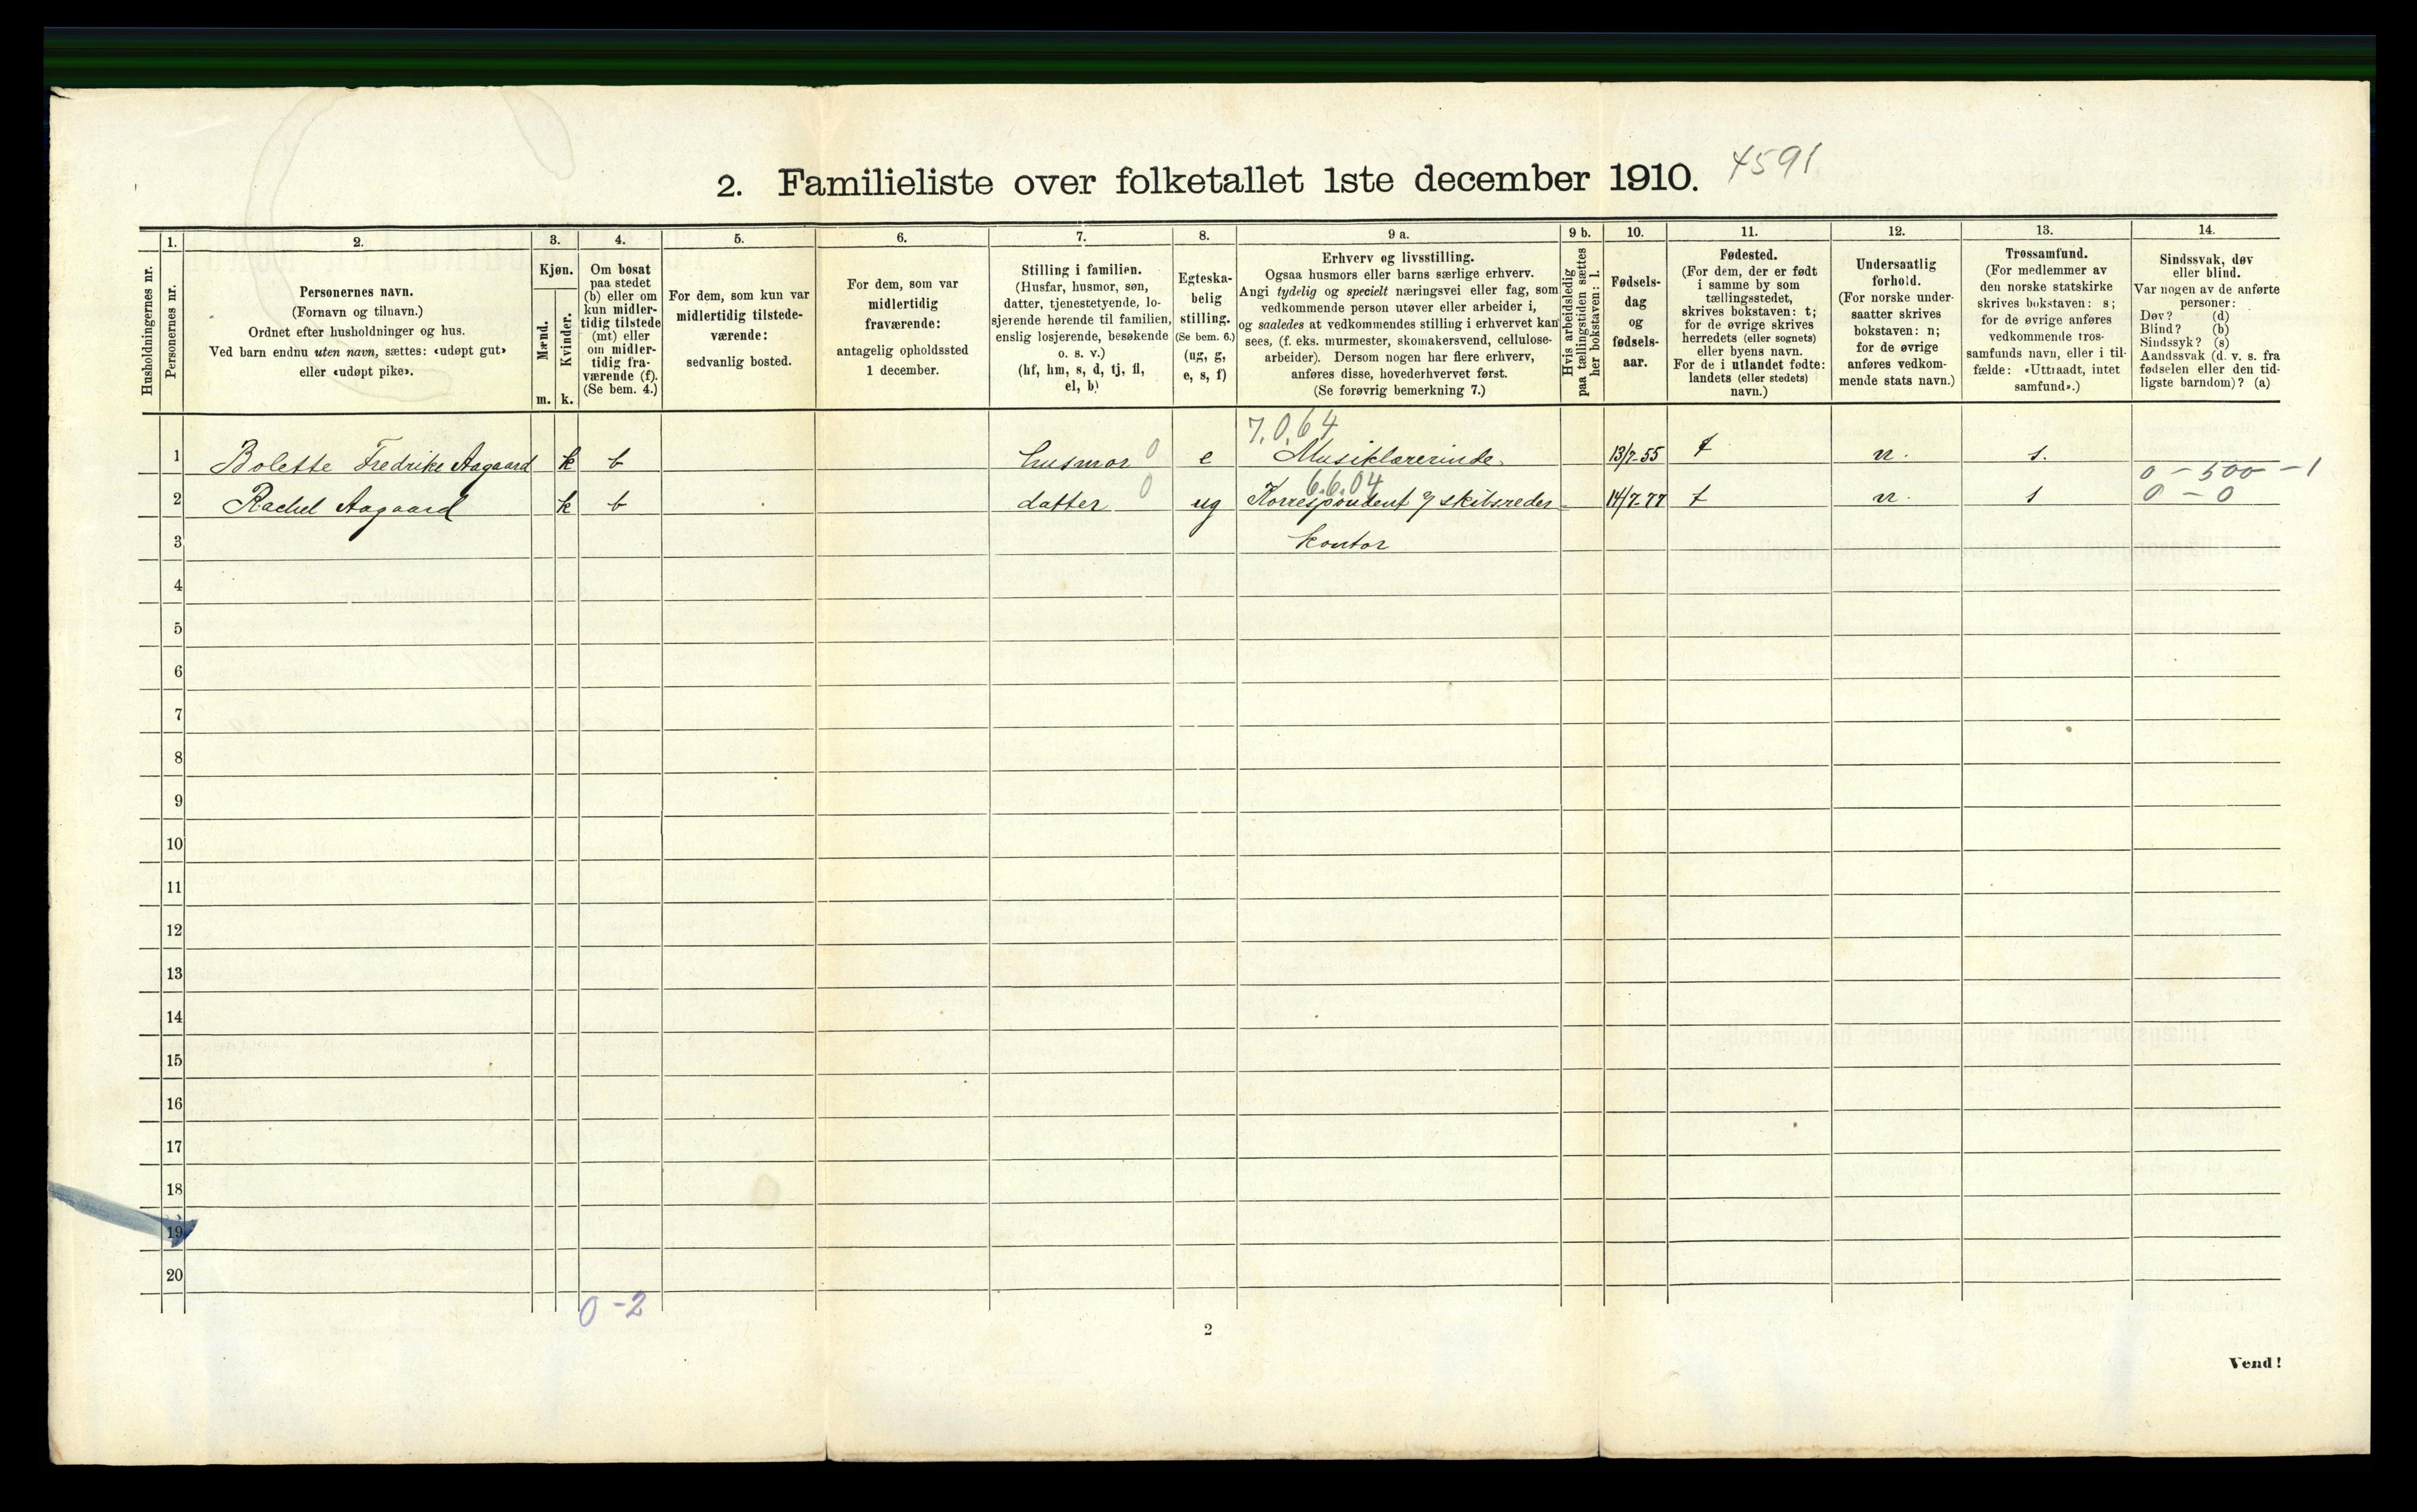 2. Familieliste over folketallet 1ste december 1910. 4591
Husholdningernes nr.
1.
Personernes nr.
2.
Personernes navn.
(Fornavn og tilnavn.)
Ordnet efter husholdninger og hus.
Ved barn endnu uten navn, sættes: «udøpt gut»
eller «udøpt pike».
3.
Kjøn.
Mænd.
Kvinder.
m. k.
4.
Om bosat
paa stedet
(b) eller om
kun midler-
tidig tilstede
(mt) eller
om midler-
tidig fra-
værende (f).
(Se bem. 4.)
5.
For dem, som kun var
midlertidig tilstede-
værende:
sedvanlig bosted.
6.
For dem, som var
midlertidig
fraværende:
antagelig opholdssted
1 december.
7.
Stilling i familien.
(Husfar, husmor, søn,
datter, tjenestetyende, lo-
sjerende hørende til familien,
enslig losjerende, besøkende
o. s. v.)
(hf, hm, s, d, tj, fl,
el, b)
8.
Egteska-
belig
stilling.
(Se bem. 6.)
(ug, g,
e, s, f)
9 a.
Erhverv og livsstilling.
Ogsaa husmors eller barns særlige erhverv.
Angi tydelig og specielt næringsvei eller fag, som
vedkommende person utøver eller arbeider i,
og saaledes at vedkommendes stilling i erhvervet kan
sees, (f. eks. murmester, skomakersvend, cellulose-
arbeider). Dersom nogen har flere erhverv,
anføres disse, hovederhvervet først.
(Se forøvrig bemerkning 7.)
9 b.
Hvis arbeidsledig
paa tællingstiden sættes
her bokstaven: l.
10.
Fødsels-
dag
og
fødsels-
aar.
11.
Fødested.
(For dem, der er født
i samme by som
tællingsstedet,
skrives bokstaven: t;
for de øvrige skrives
herredets (eller sognets)
eller byens navn.
For de i utlandet fødte:
landets (eller stedets)
navn.)
12.
Undersaatlig
forhold.
(For norske under-
saatter skrives
bokstaven: n;
for de øvrige
anføres vedkom-
mende stats navn.)
13.
Trossamfund.
(For medlemmer av
den norske statskirke
skrives bokstaven: s;
for de øvrige anføres
vedkommende tros-
samfunds navn, eller i til-
fælde: «Uttraadt, intet
samfund».)
14.
Sindssvak, døv
eller blind.
Var nogen av de anførte
personer:
Døv? (d)
Blind? (b)
Sindssyk? (s)
Aandssvak (d. v. s. fra
fødselen eller den tid-
ligste barndom)? (a)
7.0.64
1 Bolette Fredrike Aagaard k b husmor 0 e Musiklærerinde 13/7-55 t n. s.
0 - 500 - 1
6.6.04
2 Rachel Aagaard k b datter 0 ug Korrespondent skibsreder 14/7-77 t n. s 0 - 0
3 kontor
4
5
6
7
8
9
10
11
12
13
14
15
16
17
18
19
20
0 - 2
2
Vend!